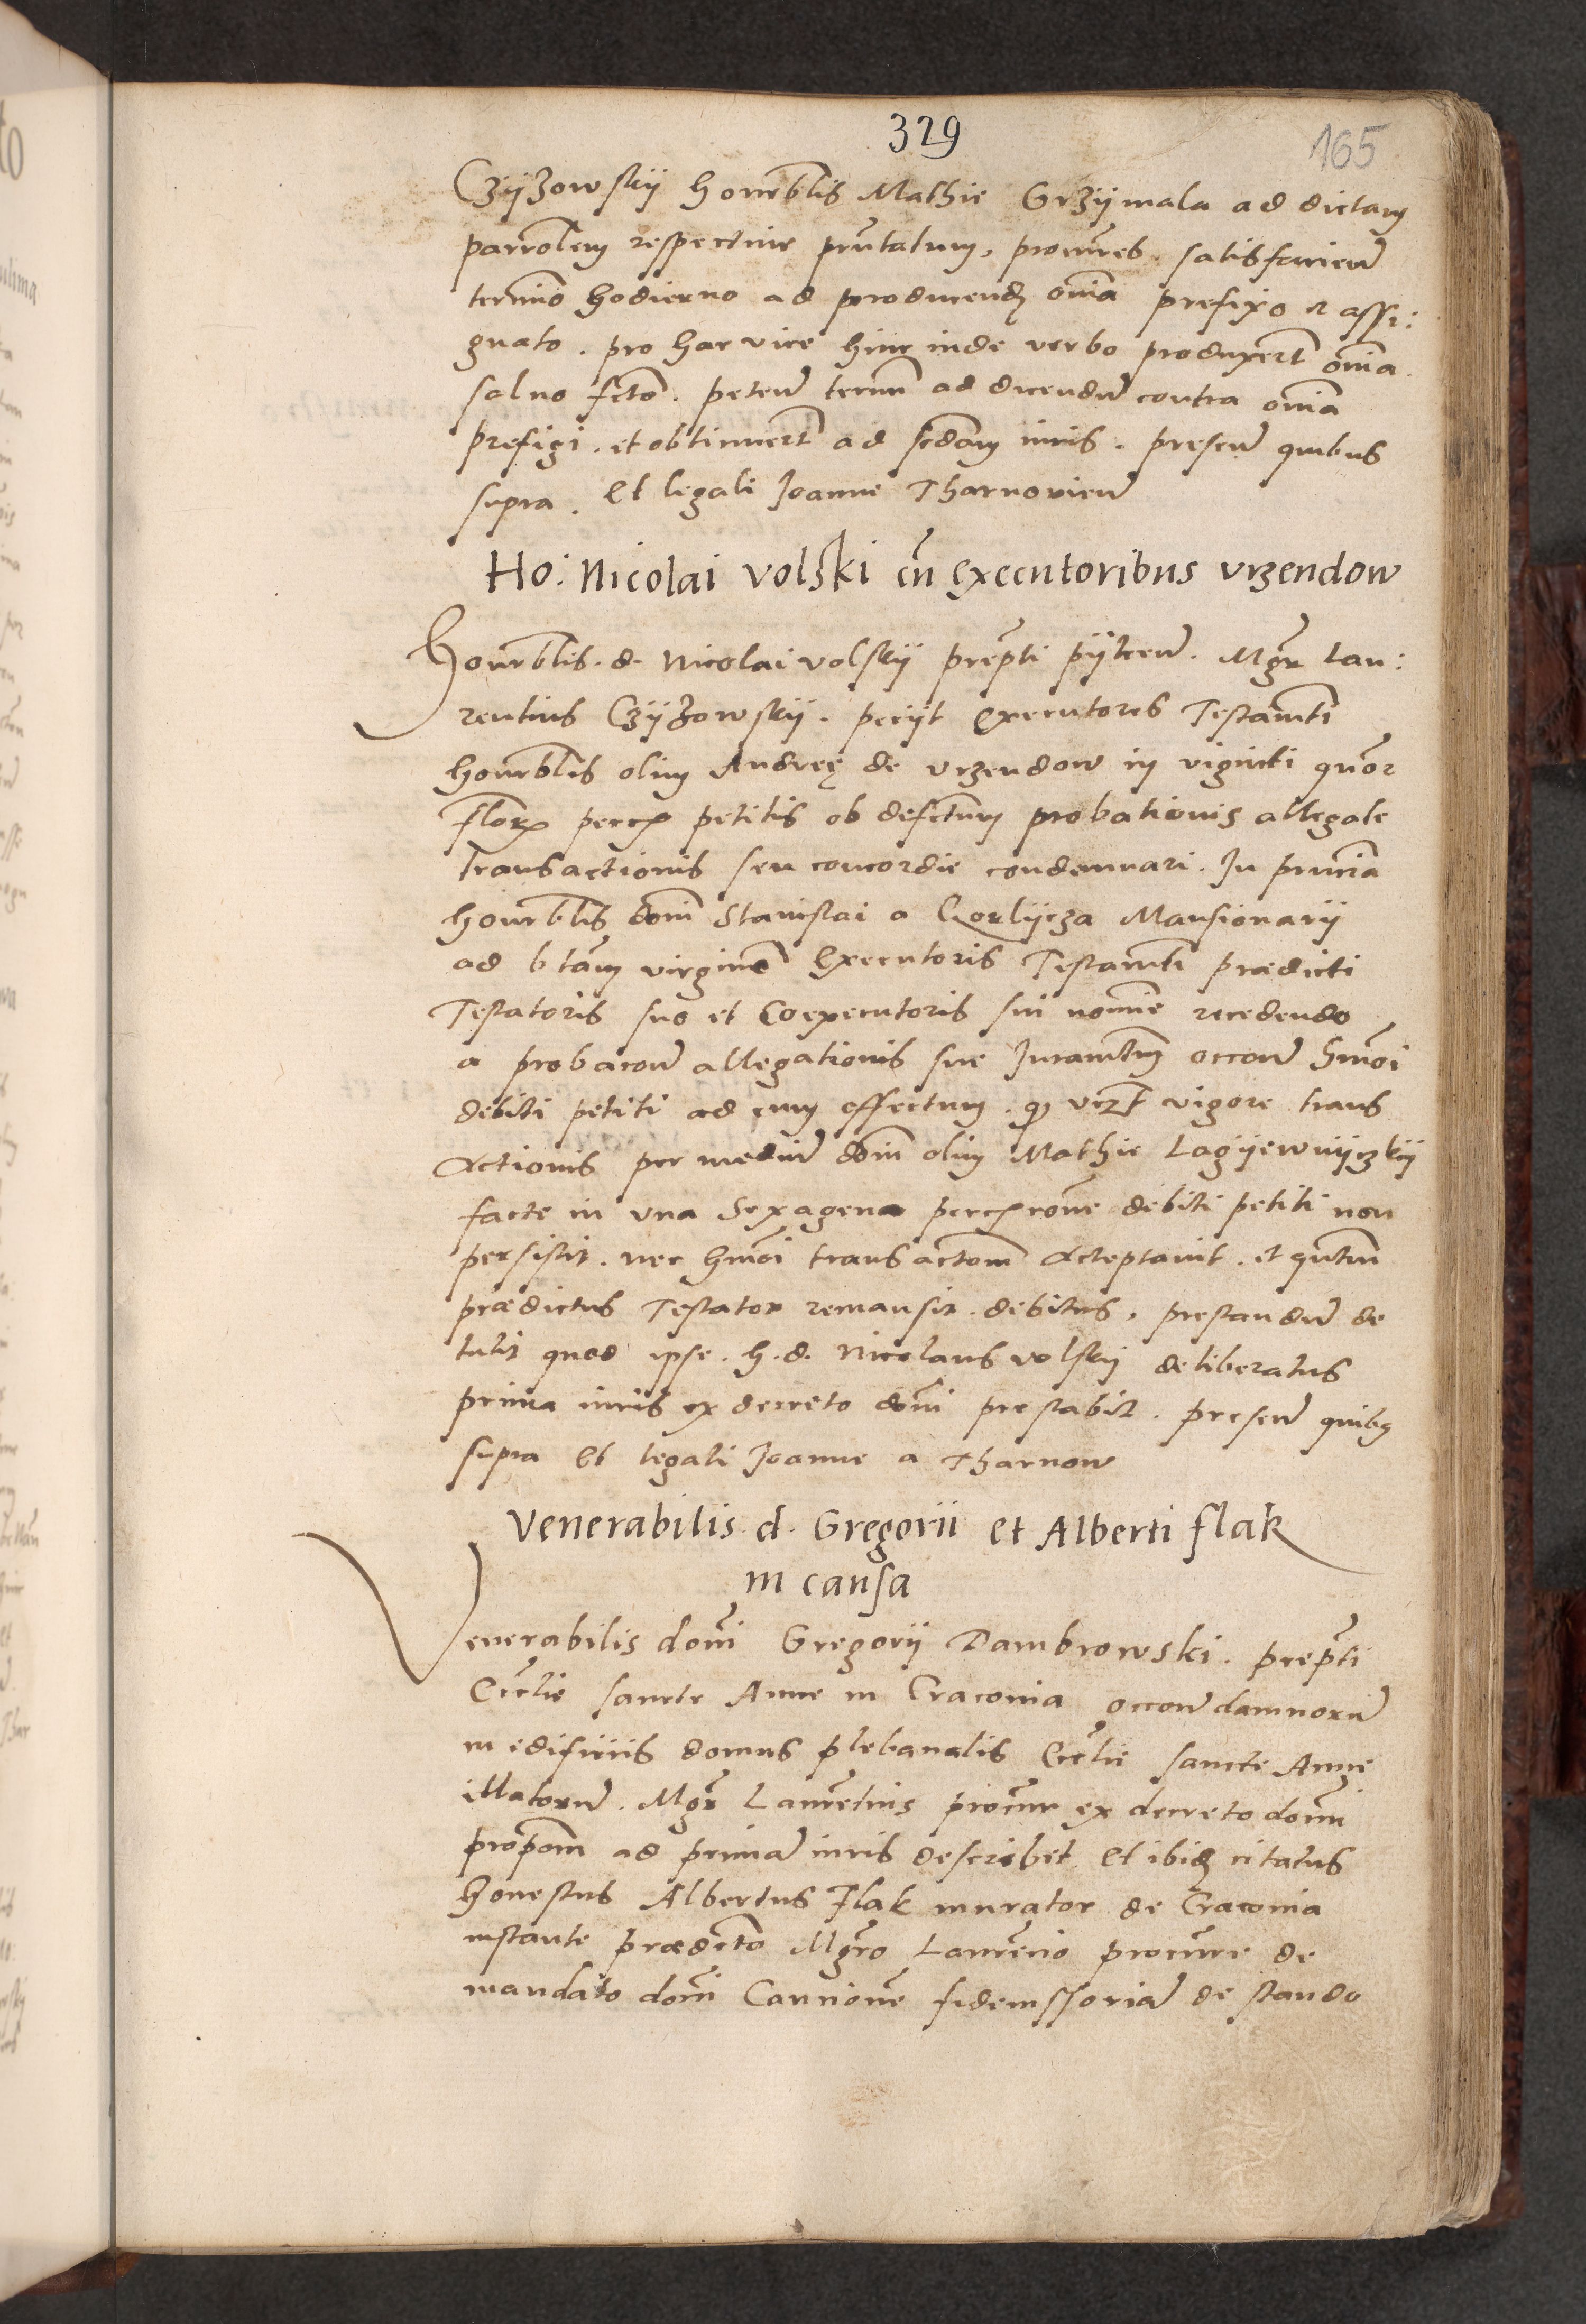 329
165
Czÿzowskÿ honrblis Mathie Grzÿmala ad dictam
parrolem respective prñtatum, procures satisfacieñ
termino hodierno ad producend omnia prefixo et assi:
gnato. pro hac vice hinc inde verbo produxert omnia
salvo scto. peteñ termñ ad dicendũ contra omnia
prefigi. et obtinuert ad scdam iuris. preseñ quibus
supra. Et legali Joanne Tharnovieñ
Ho: Nicolai volski cũ executoribus vrzendow
Honrblis. d. Nicolai volskÿ preptĩ pÿlceñ. Mgr Lau:
rentius Czÿzowskÿ. peciit executores Testamti
honrblis olim Andreę de vrzendow in viginti quor
flor pecc petitis ob defectum probationis allegate
transactionis seu concordie condemnari. In pñcia
honrblis dom Stanislai a Gorlÿcza Mansionarii
ad btam virginẽ Executoris Testamti praedicti
Testatoris suo et Coexecutoris sui nomie recedendo
a probacoñ allegationis sue Juramtum occoñ hmoi
debiti petiti ad eum effectum. q vzt vigore trans
actionis per mediũ dom olim Mathie Lagÿewnÿczkÿ
facte in vna sexagena pecc rone debiti petiti non
persistit. nec hmoi transactom acceptavit. et qntum
praedictus Testator remansit debitus, prestandũ de
tulit quod ipse. h. d. Nicolaus volskÿ deliberatus
prima iuris ex decreto domi prestabit. preseñ quibq
supra Et legali Joanne a Tharnow
Venerabilis d. Gregorii et Alberti flak
in causa
Venerabilis domi Gregorÿ Dambrowski. prepti
Ecclie sancte Anne in Cracovia occoñ damnorũ
in edificiis domus plebanalis Ecclie sancte Anne
illatorũ. Mgr Laurentius procur ex decreto domi
propom ad primã iuris describet Et ibid citatus
Honestus Albertus Flak murator de Cracovia
instante praedcto Mgro Laurencio procure de
mandato domi Caucionẽ fideiussoriã de stando